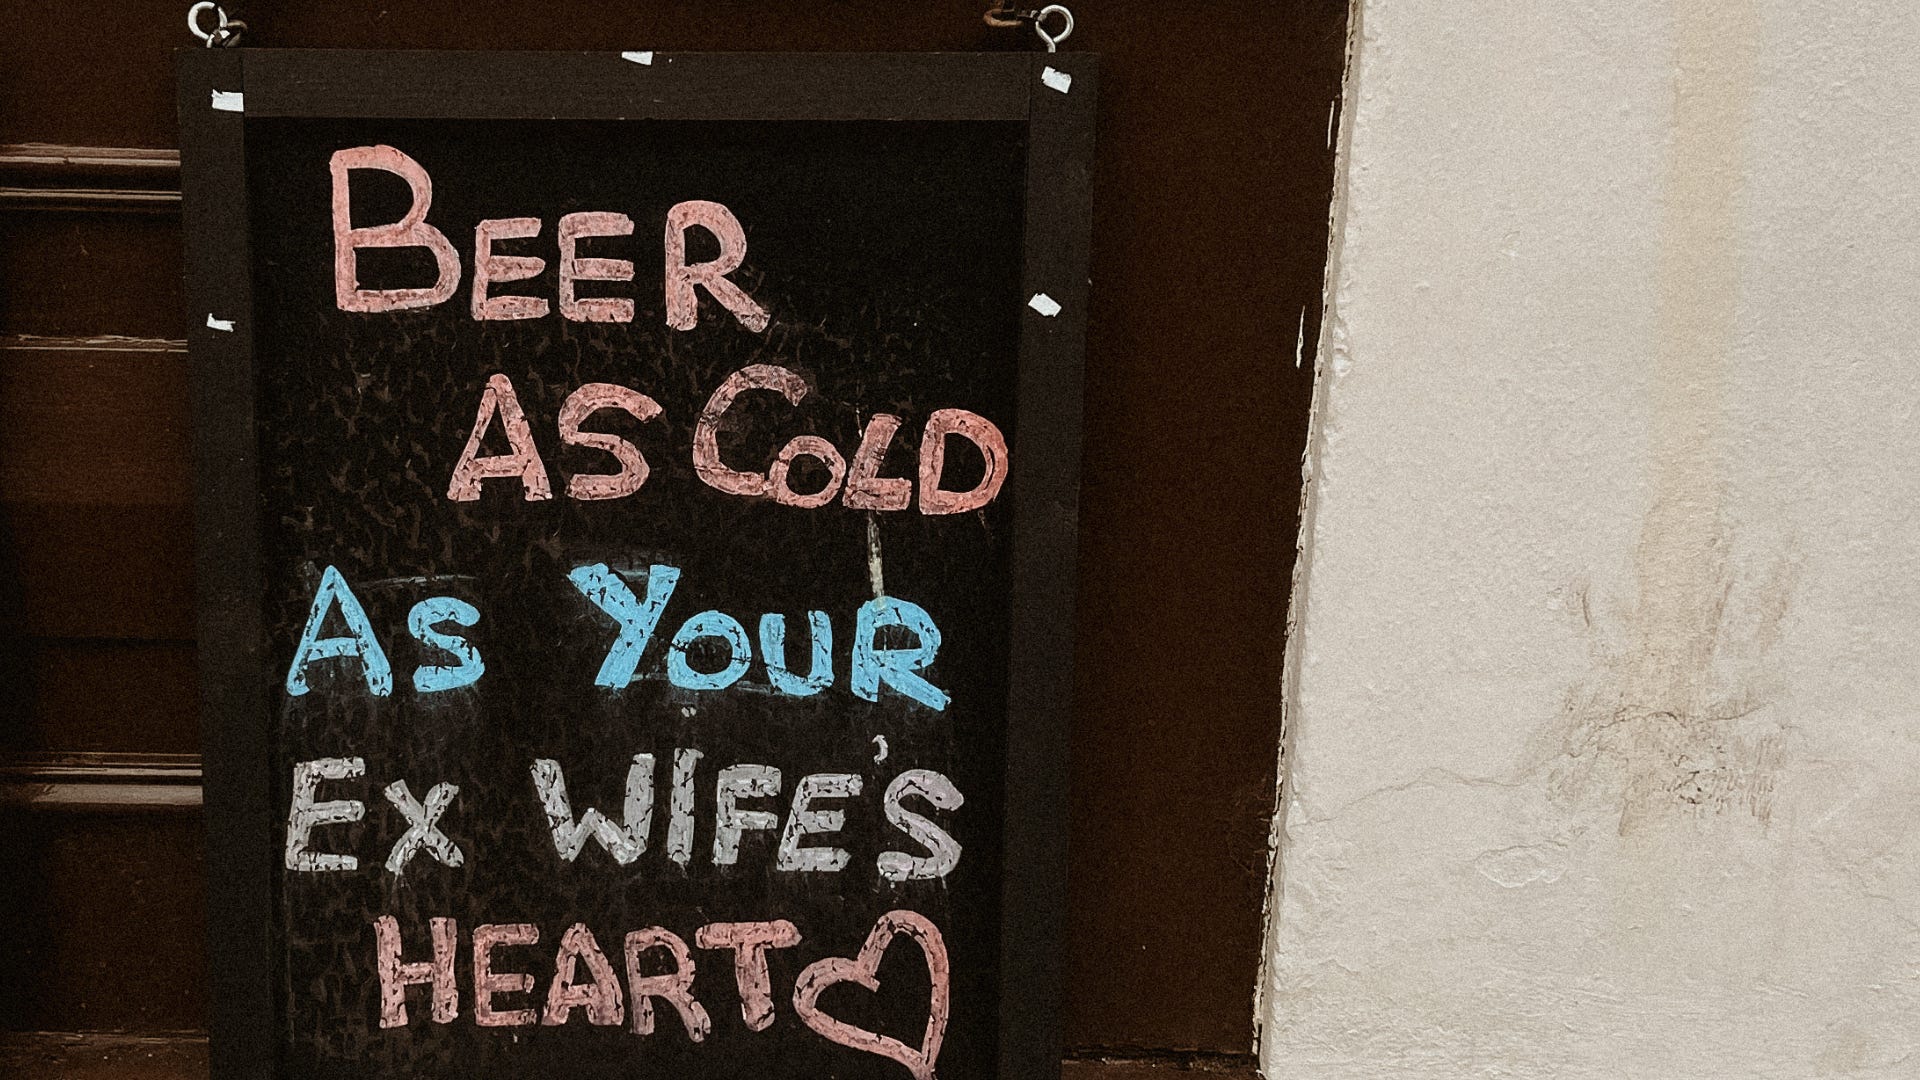 BEER
AS COLD
AS YOUR
EX WIFE'S
HEART